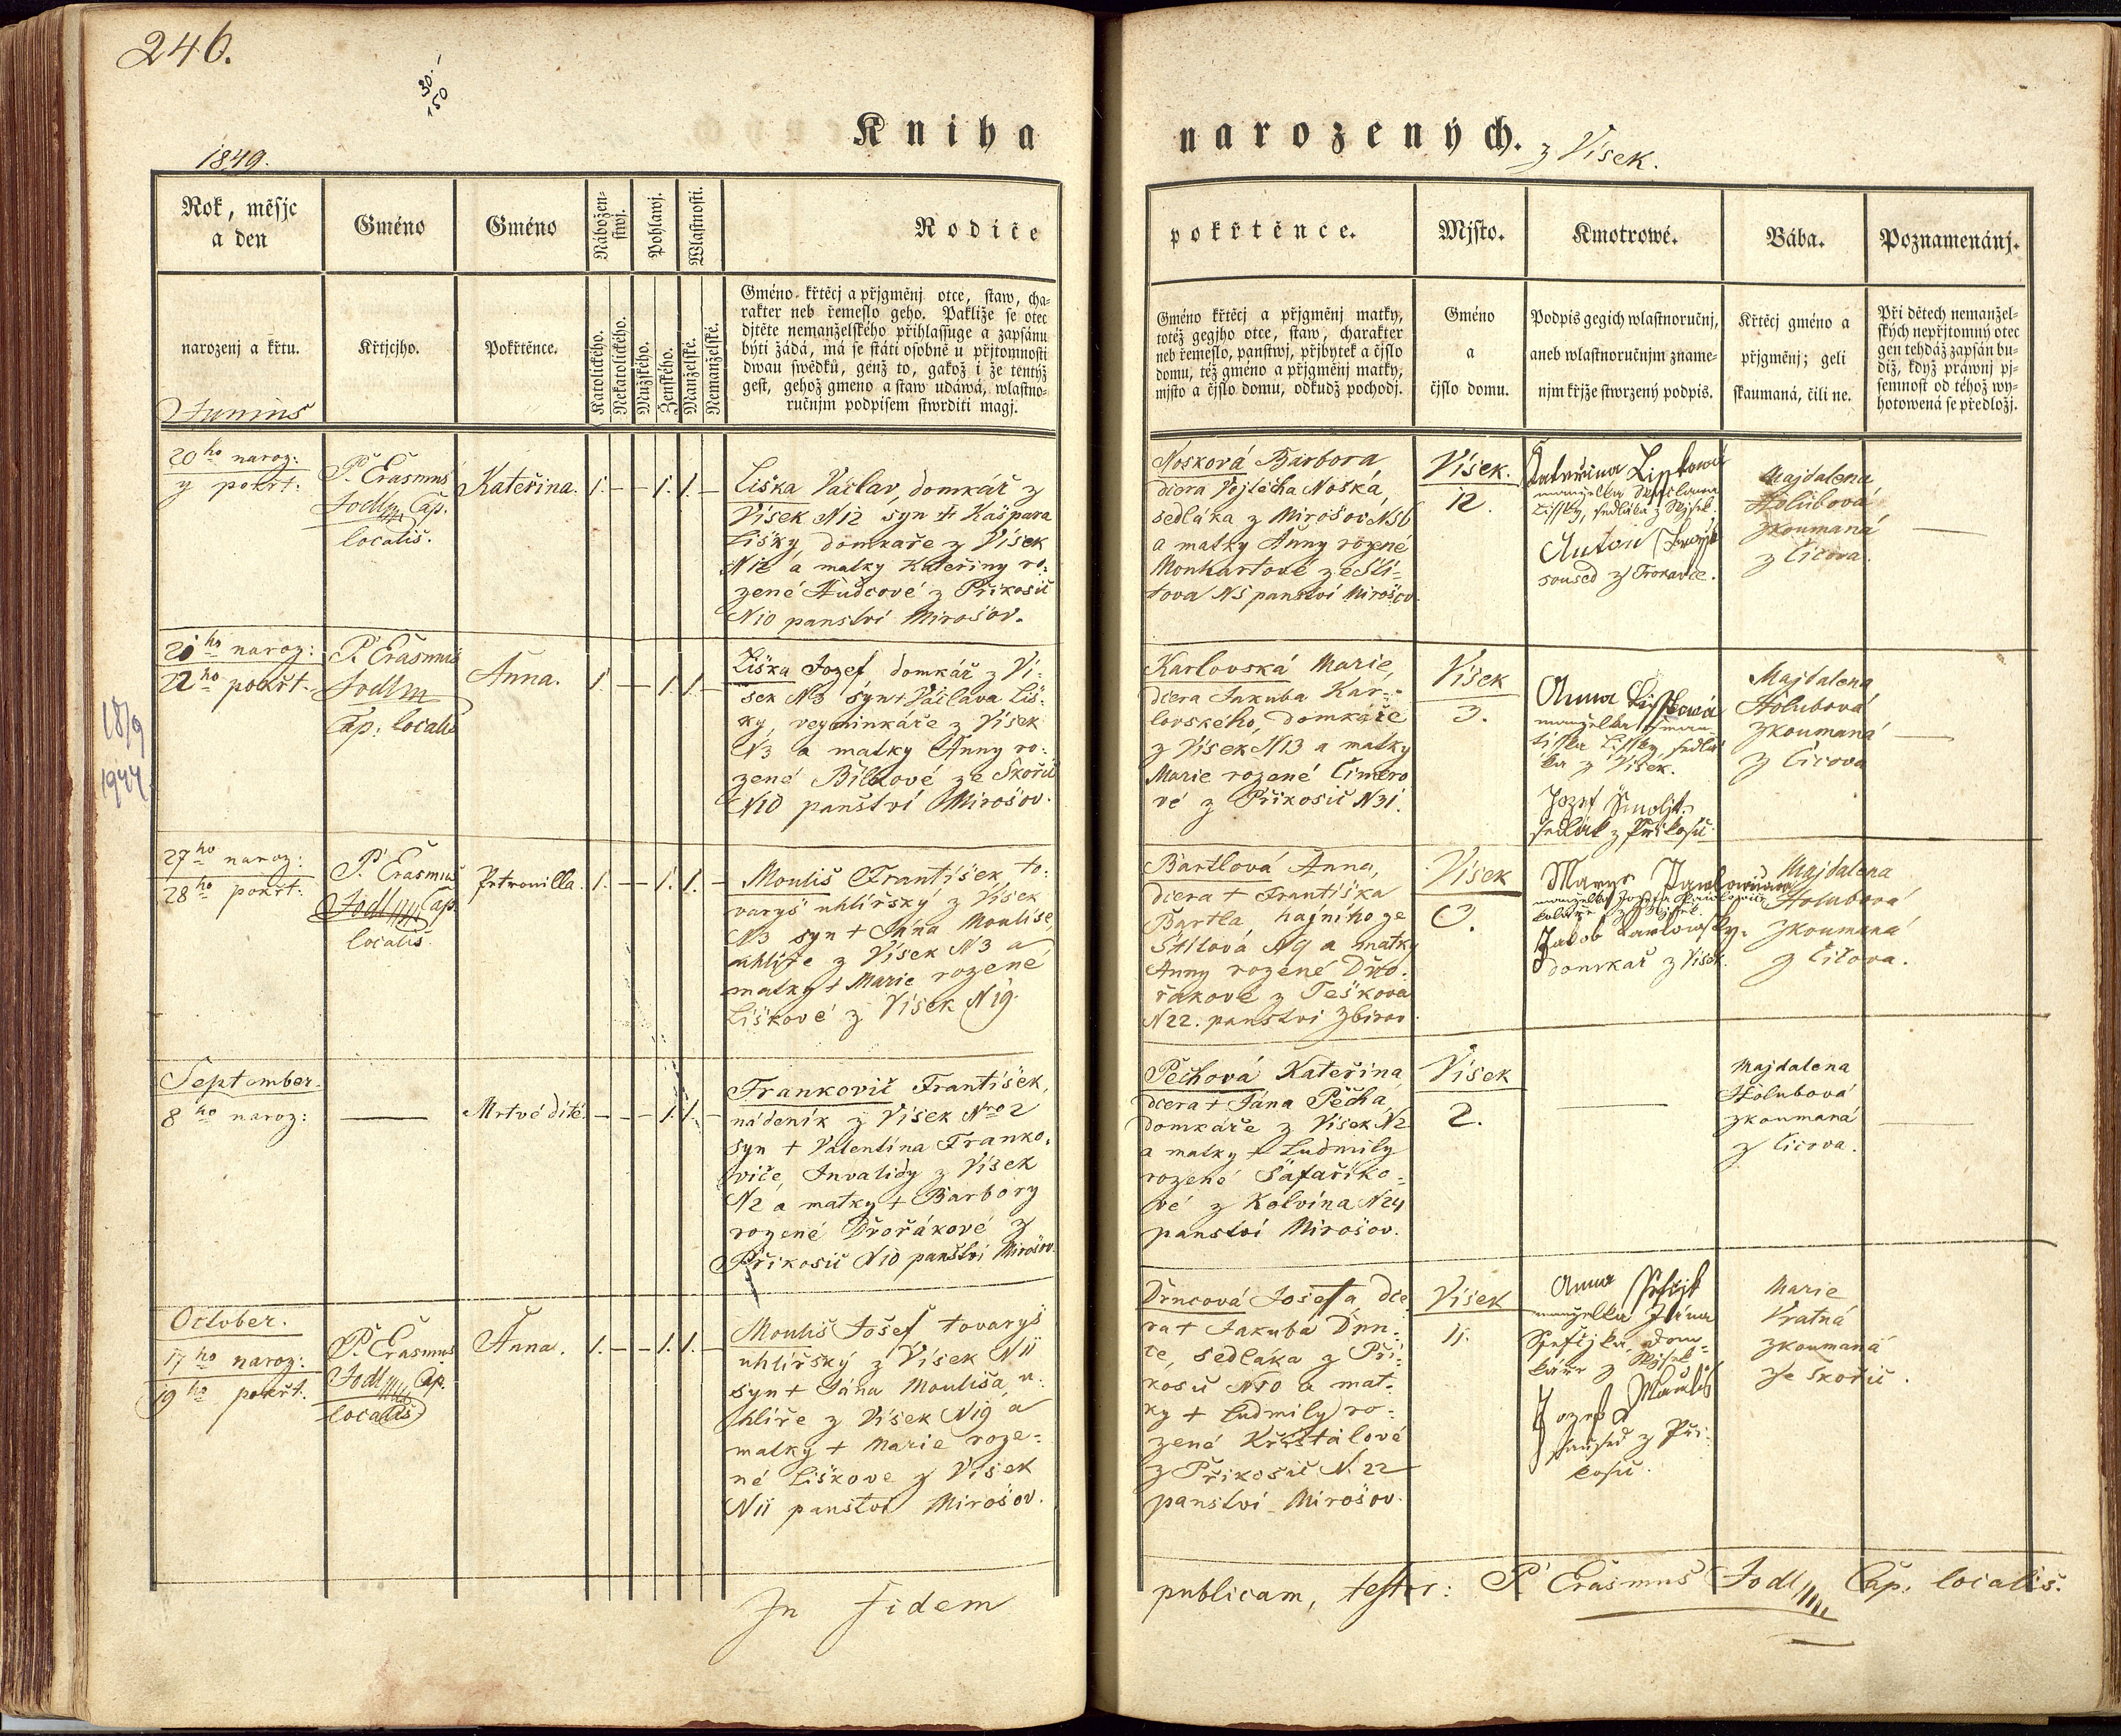 246.
30.-
150
Kniha
narozených. z Vísek.
1849.
Rok, měsjc
a den
Gméno
Gméno
Nábožen-
stwj.
Pohlawj.
Wlastnosti.
Rodiče
pokřtěnce.
Mjsto.
Kmotrowé.
Bába.
Poznamenánj.
narozenj a křtu.
Křtjcjho.
Pokřtěnce.
Katolického.
Nekatolického.
Mužského.
Ženského.
Manželské.
Nemanželské.
Gméno křtěcj a přjgměnj otce, staw, cha-
rakter neb řemeslo geho. Pakliže se otec
djtěte nemanželského přihlassuge a zapsánu
býti žádá, má se státi osobně u přjtomnosti
dwau swědků, genž to, gakož i že tentýž
gest, gehož gmeno a staw udáwá, wlastno-
ručnjm podpisem stwrditi magj.
Gméno křtěcj a přjgměnj matky,
totéž gegjho otce, staw, charakter
neb řemeslo, panstwj, přjbytek a čjslo
domu, též gméno a přjgměnj matky,
mjsto a čjslo domu, odkudž pocházj.
Gméno
a
čjslo domu.
Podpis gegich wlastnoručnj,
aneb wlastnoručnjm zname-
njm křjže stwrzený podpis.
Křtěcj gméno a
přjgměnj; geli
skaumaná, čili ne.
Při dětech nemanžel-
ských nepřjtomný otec
gen tehdáž zapsán bu-
diž, když práwnj pj-
semnost od téhož wy-
hotowená se předložj.
Junius
20ho naroz:
y pokřt:
P. Erasmus
Jodl Cap.
localis.
Kateřina.
1. — 1. 1. —
Liška Václav, domkář z
Vísek N12 syn + Kašpara
Lišky, domkaře z Vísek
N12 a matky Kateřiny ro:
zené Hudcové z Příkosic
N10 panství Mirošov.
Nosková Barbora
dcera Vojtěcha Noska,
sedláka z Mirošov N56
a matky Anny rozené
Monhartové ze Ští-
tova N5 panství Mirošov.
Vísek.
12.
Kateřina Lisskowá
manželka
Lissky, sedláka z Wjsek.
Anton
soused z Trokavce.
Majdalena
Holubová
zkoumaná
z Čičova.
—
21ho naroz:
22ho pokřt.
P. Erasmus
Jodl
Cap: localis
Anna.
1. — 1. 1. —
Liška Jozef, domkář z Ví-
sek N3 syn + Václava Liš-
ky, vejminkáře z Vísek
N3 a matky Anny ro:
zené Bílkové ze Skořic
N10 panství Mirošov.
Karlovská Marie,
dcera Jakuba Kar-
lovského, domkáře
z Vísek N13 a matky
Marie rozené Cimero
vé z Příkosic N31.
Vísek
3.
Anna Lisskowá
manželka Fran-
tisska Lissky, sedlá
ka z Vísek.
Jozef Smolik
sedlák z Příkosic.
Majdalena
Holubová
zkoumaná
z Čičova
—
18/9
1944
27ho naroz:
28ho pokřt:
P. Erasmus
Jodl Cap.
localis.
Petronilla.
1. — 1. 1. —
Mouliš František, to:
varyš uhlířský z Vísek
N3 syn + Jána Moulise,
uhlíře z Vísek N3 a
matky + Marie rozené
Liškové z Vísek N19.
Bartlová Anna,
dcera + Františka
Bartla, hajního ze
Štítová N9 a matky
Anny rozené Dvo-
řákové z Těškova
N22. panství Zbirov
Vísek
3.
Marye
manželka Jozefa
koláře z Wjsek.
Jakob Karlowsky.
domkář z Vísek.
Majdalena
Holubová
zkoumaná
z Čičova.
September.
8ho naroz:
—
Mrtvé dítě.
— — — 1. 1. —
Frankovič František,
nádeník z Vísek Nro 2
syn + Valentína Franko-
viče, Invalidy z Vísek
N2 a matky + Barbory
rozené Dvořákové z
Příkosic N10 panství Mirošov.
Pechová Kateřina
dcera + Jána Pecha,
domkáře z Vísek N2
a matky + Ludmily
rozené Šafaříko-
vé z Kolvína N24
panství Mirošov.
Vísek
2.
—
Majdalena
Holubová
zkoumaná
z Čičova.
—
October.
17ho naroz:
19ho pokřt.
P. Erasmus
Jodl Cap.
localis
Anna.
1. — 1. 1. —
Mouliš Jošef, tovaryš
uhlířský z Vísek N11
syn + Jána Mouliša, u-
hlíře z Vísek N19 a
matky + Marie roze-
né Liškove z Vísek
N11 panství Mirošov.
Drncová Josefa dce
ra + Jakuba Drn-
ce, sedláka z Pří-
kosic N10 a mat-
ky + Ludmily ro-
zené Křištálové
z Příkosic N. 22
panství Mirošov.
Vísek
11.
Anna
manželka Jána
dom-
káře z Wjsek
Jozef Maulis
saused z Pří-
kosic.
Marie
Vratná
zkoumaná
ze Skořic.
In fidem
publicam, testor: P. Erasmus Jodl Cap. localis.